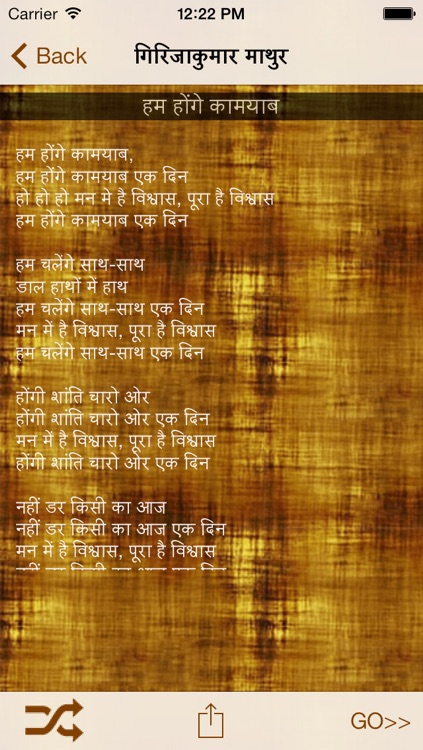 Carrier 12:22 PM
Back गिरिजाकुमार माथुर
हम होंगे कामयाब
हम होंगे कामयाब,
हम होंगे कामयाब एक दिन
हो हो हो मन मे है विश्वास, पूरा है विश्वास
हम होंगे कामयाब एक दिन
हम चलेंगे साथ-साथ
डाल हाथों में हाथ
हम चलेंगे साथ-साथ एक दिन
मन में है विश्वास, पूरा है विश्वास
हम चलेंगे साथ-साथ एक दिन
होंगी शांति चारो ओर
होंगी शांति चारो ओर एक दिन
मन में है विश्वास, पूरा है विश्वास
होंगी शांति चारो ओर एक दिन
नहीं डर किसी का आज
नहीं डर किसी का आज एक दिन
मन में है विश्वास, पूरा है विश्वास
GO>>